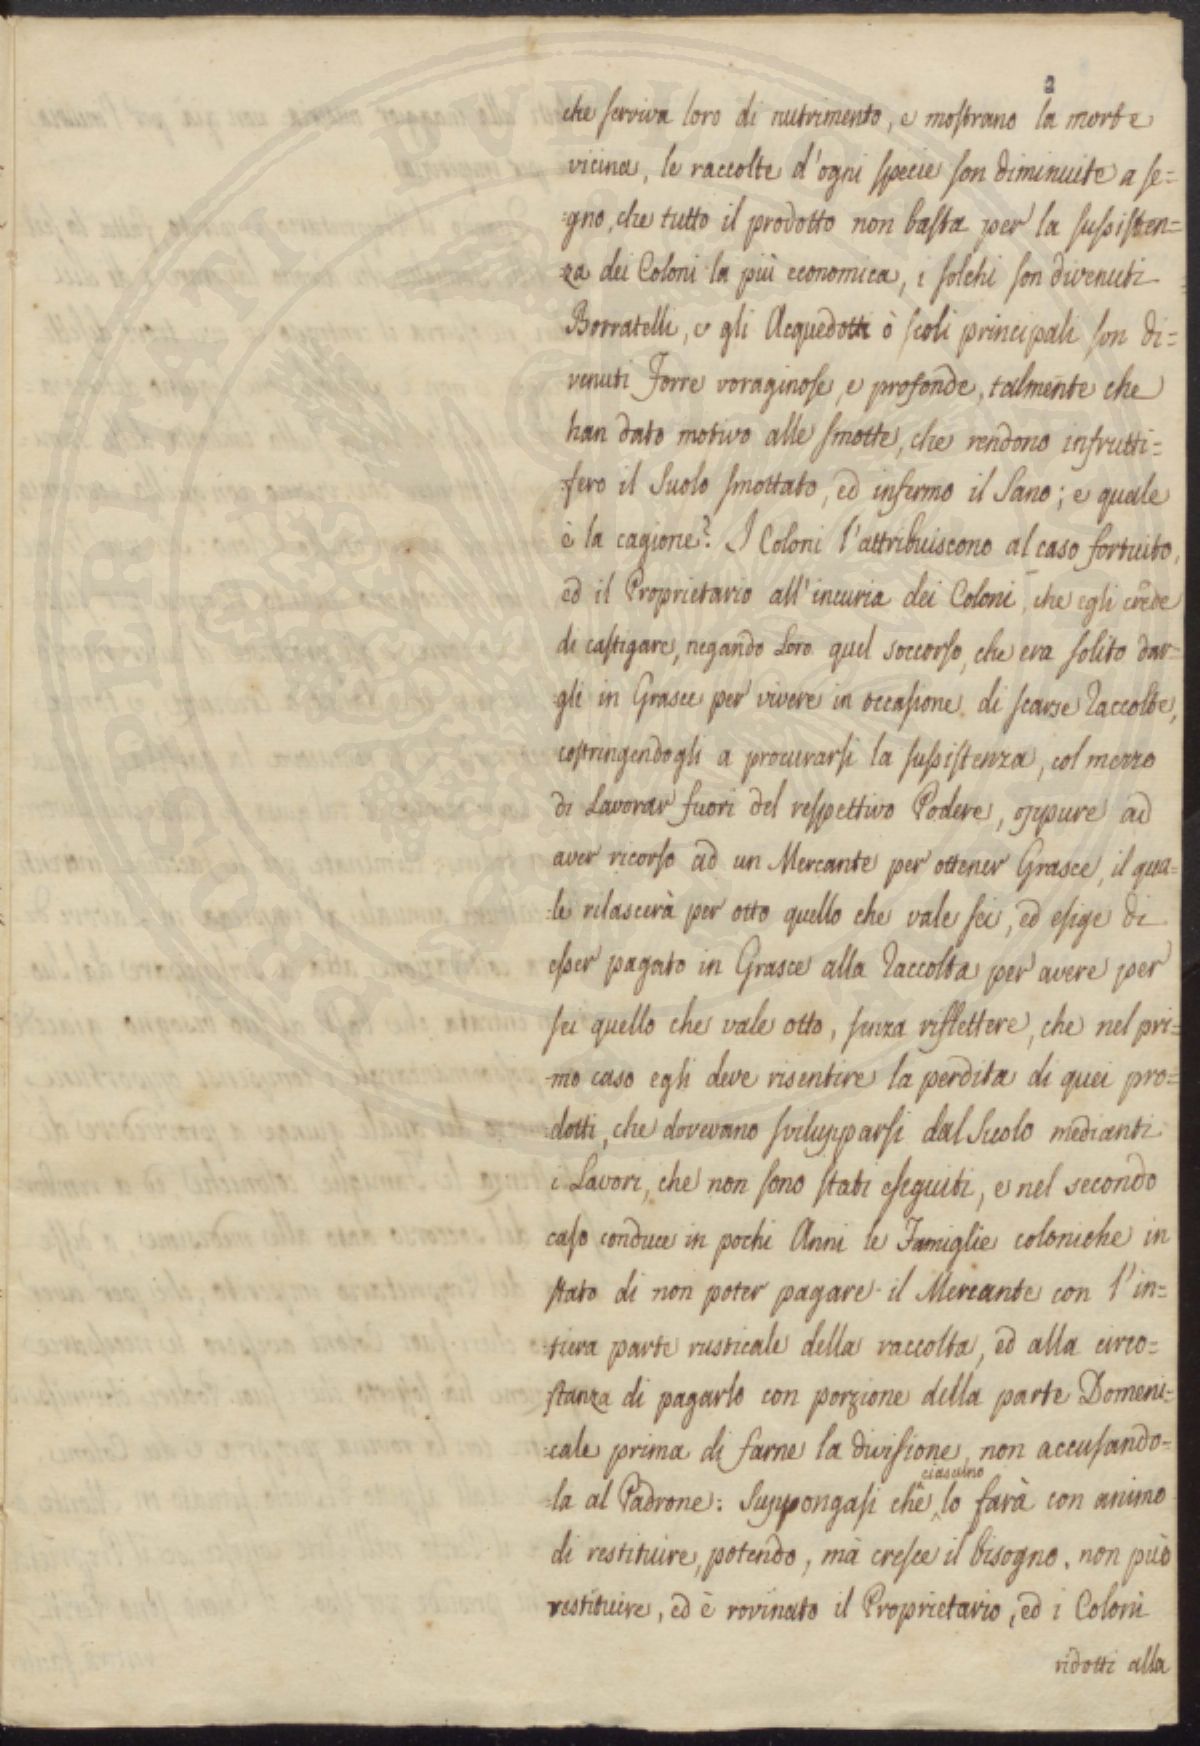 2
che serviva loro di nutrimento, e mostrano la morte
vicina, le raccolte d'ogni specie son diminuite a se=
=gno, che tutto il prodotto non basta per la sussisten=
za dei Coloni la più economica, i solchi son divenuti
Borratelli, e gli Acquedotti ò scoli principali son di=
venuti Forre voraginose, e profonde, talmente che
han dato motivo alle smotte, che rendono infrutti=
=fero il Suolo smottato, ed infermo il Sano; e quale
è la cagione? I Coloni l'attribuiscono al caso fortuito,
ed il Proprietario all'incuria dei Coloni, che egli crede
di castigare, negando Loro quel soccorso, che era solito dar=
gli in Grasce per vivere in occasione di scarse Raccolte,
costringendogli a procurarsi la sussistenza, col mezzo
di Lavorar fuori del respettivo Podere, oppure ad
aver ricorso ad un Mercante per ottener Grasce, il qua=
=le rilascerà per otto quello che vale sei, ed esige di
esser pagato in Grasce alla Raccolta per avere per
sei quello che vale otto, senza riflettere, che nel pri=
=mo caso egli deve risentire la perdita di quei pro=
=dotti, che dovevano svilupparsi dal Suolo medianti
i Lavori, che non sono stati eseguiti, e nel secondo
caso conduce in pochi Anni le Famiglie coloniche in
stato di non poter pagare il Mercante con l'in=
=tiera parte rusticale della raccolta, ed alla circo=
stanza di pagarlo con porzione della parte Domeni=
=cale prima di farne la divisione, non accusando=
=la al Padrone: Suppongasi che ciascuno lo farà con animo
di restituire, potendo, mà cresce il bisogno, non può
restituire, ed è rovinato il Proprietario, ed i Coloni
ridotti alla